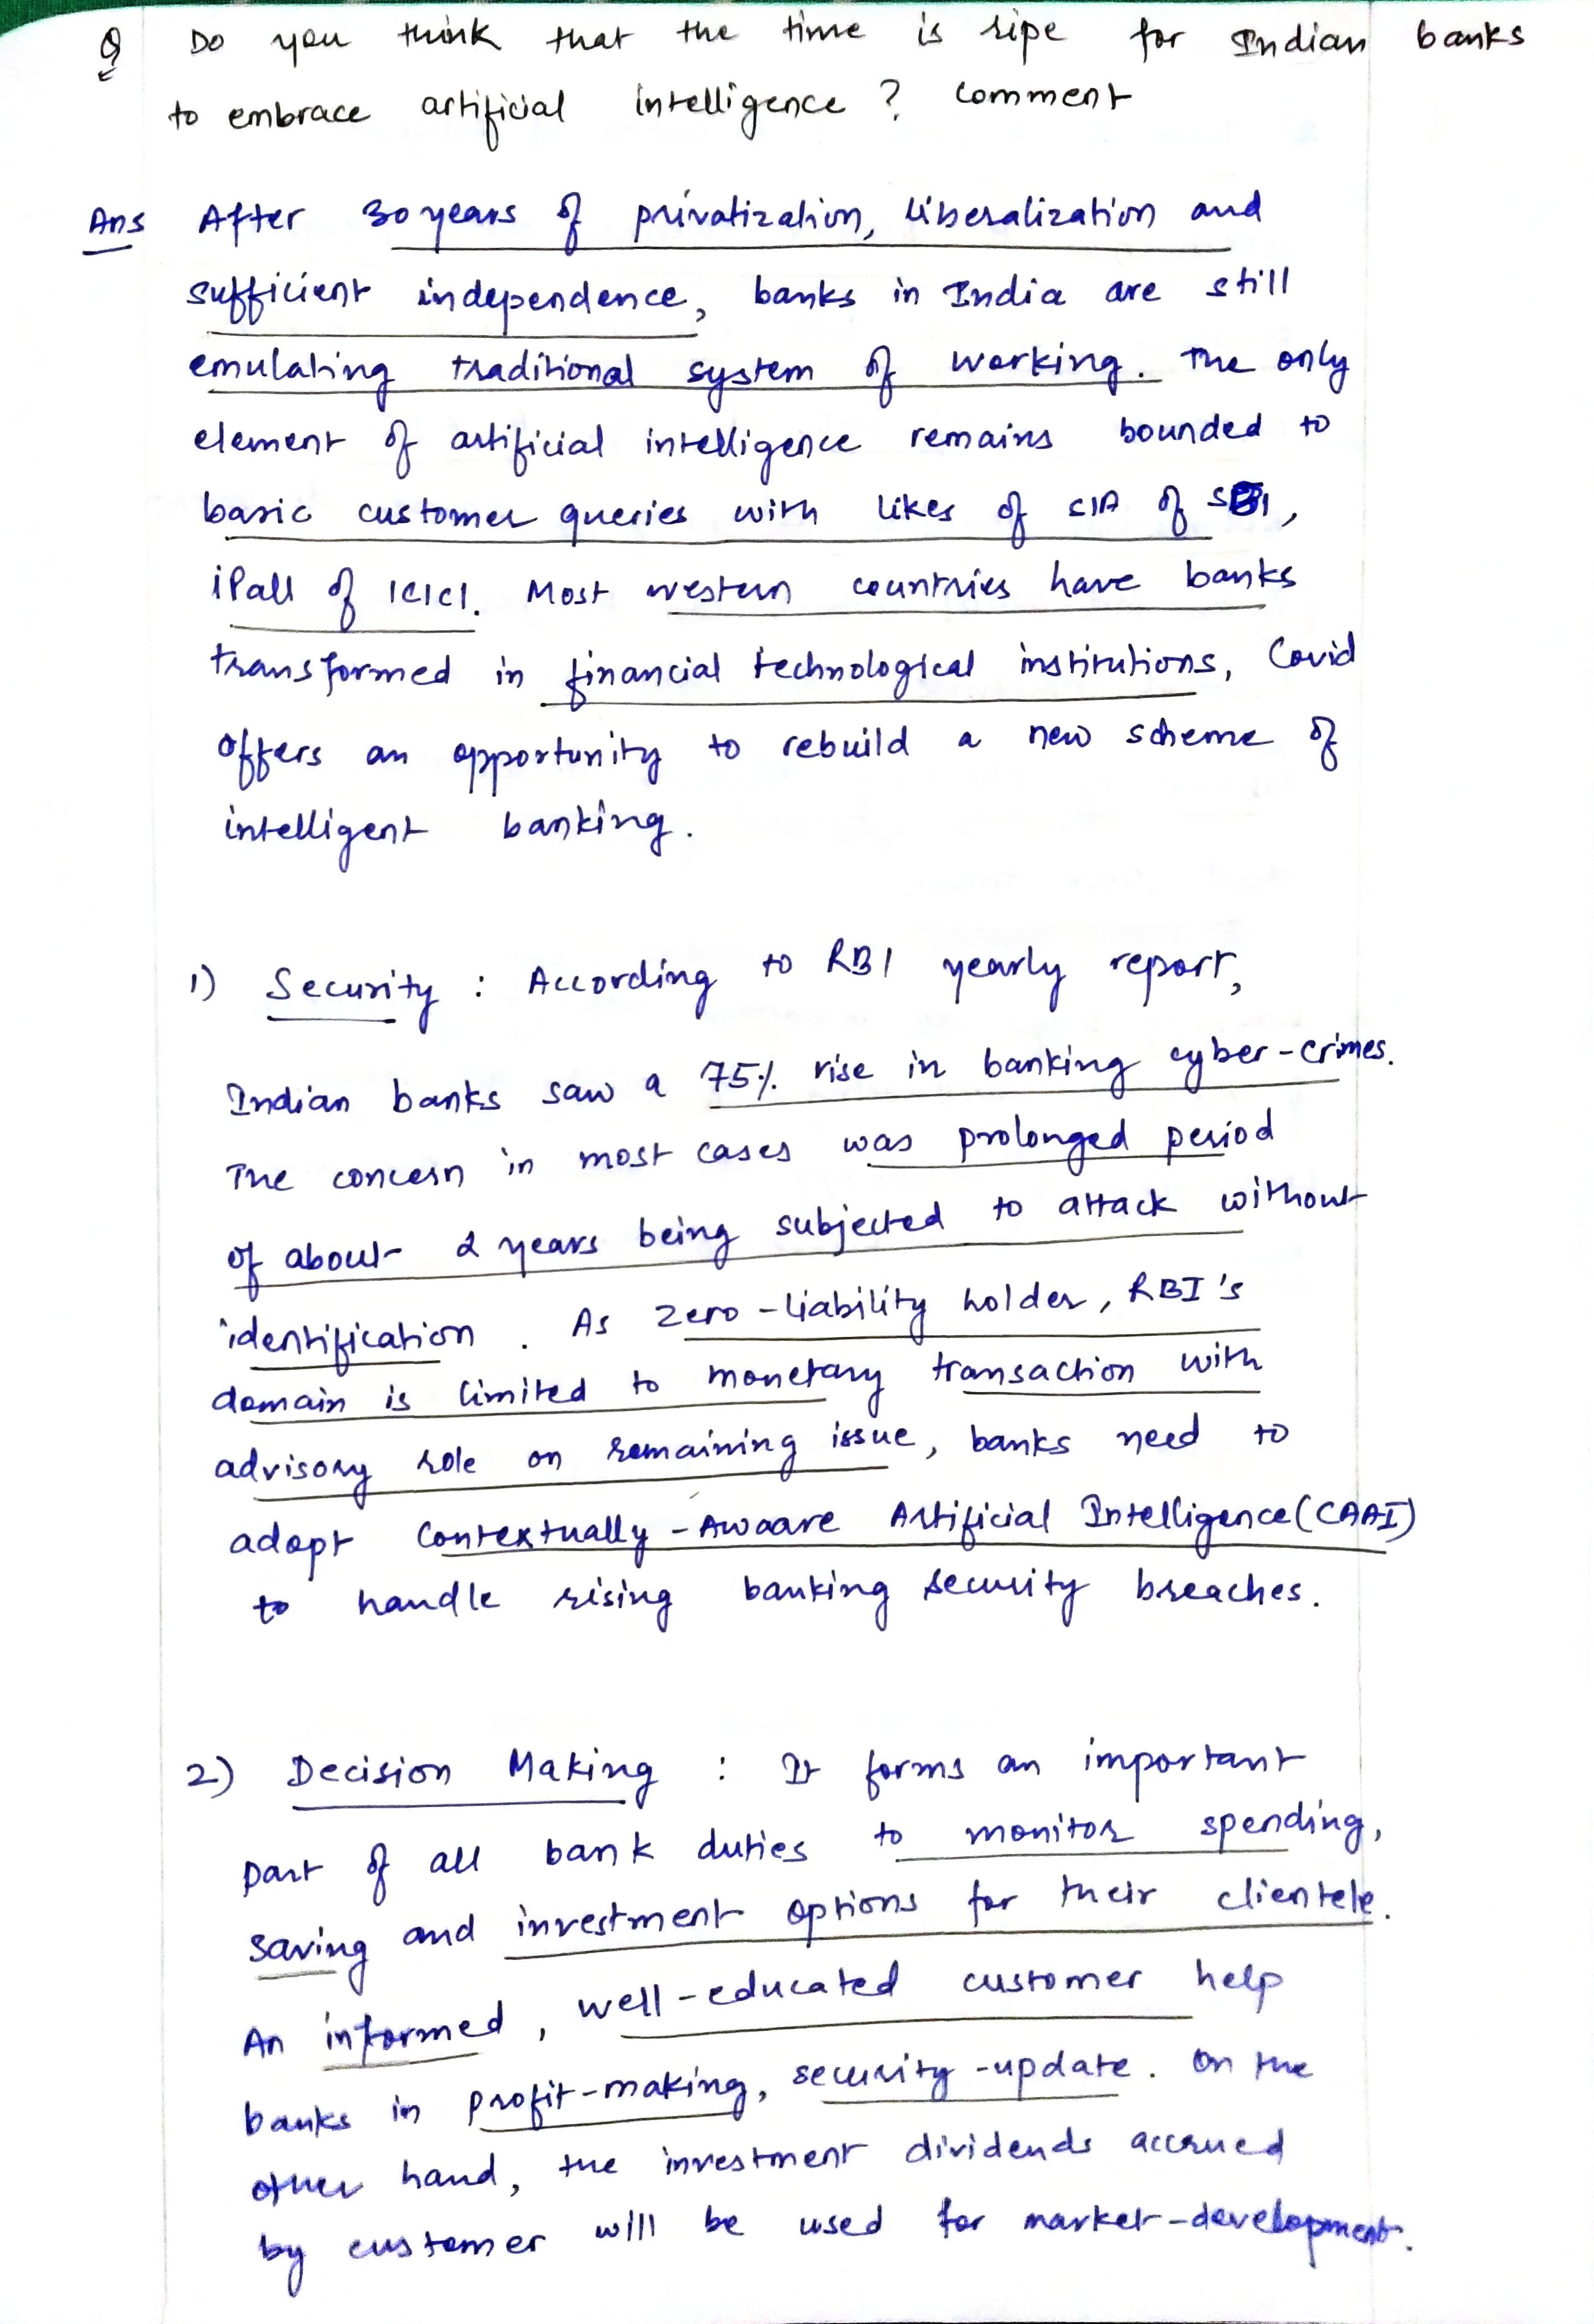 Q Do you think that the time is ripe for Indian banks
to embrace artificial intelligence ? comment
Ans After 30 years of privatization, liberalization and
sufficient independence, banks in India are still
emulating traditional system of working. The only
element of artificial intelligence remains bounded to
basic customer queries with likes of SIA of SBI,
iPall of ICICI. Most western countries have banks
transformed in financial technological institutions, Covid
offers an opportunity to rebuild a new scheme of
intelligent banking.
1) Security : According to RBI yearly report,
Indian banks saw a 75% rise in banking cyber-crimes.
The concern in most cases was prolonged period
of about 2 years being subjected to attack without
identification . As zero-liability holder, RBI's
domain is limited to monetary transaction with
advisory role on remaining issue, banks need to
adopt Contextually-Awaare Artificial Intelligence(CAAI)
to handle rising banking security breaches.
2) Decision Making : It forms an important
part of all bank duties to monitor spending,
saving and investment options for their clientele.
An informed, well-educated customer help
banks in profit-making, security-update. On the
other hand, the investment dividends accrued
by customer will be used for market-development.